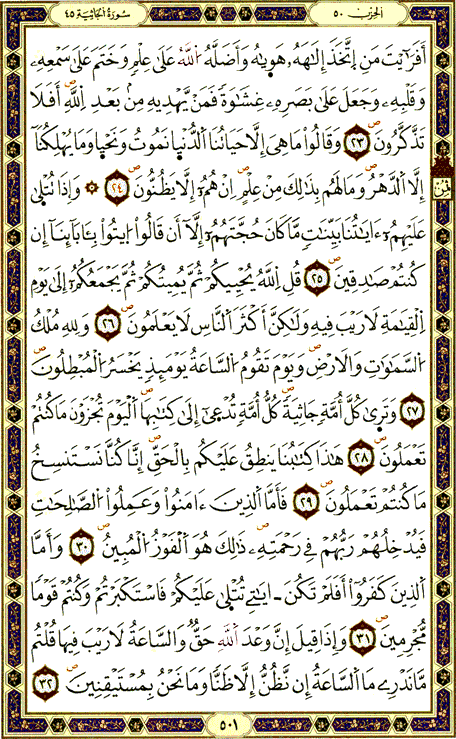 سُورَةُ الجَاثِيَة ٤٥
الحِزْبُ ٥٠
أَفَرَٰٓيْتَ مَنِ اِ۪تَّخَذَ إِلَٰهَهُۥ هَو۪يٰهُ وَأَضَلَّهُ اُ۬للَّهُ عَلَىٰ عِلْمٖ وَخَتَمَ عَلَىٰ سَمْعِهِۦ
وَقَلْبِهِۦ وَجَعَلَ عَلَىٰ بَصَرِهِۦ غِشَٰوَةٗ فَمَنْ يَّهْدِيهِ مِنۢ بَعْدِ اِ۬للَّهِ أَفَلَا
تَذَّكَّرُونَ ٢٣ وَقَالُوا۟ مَا هِيَ إِلَّا حَيَاتُنَا اَ۬لدُّنْيَا نَمُوتُ وَنَحْيَا وَمَا يُهْلِكُنَآ
إِلَّا اَ۬لدَّهْرُ وَمَا لَهُم بِذَٰلِكَ مِنْ عِلْمٍ إِنْ هُمُۥٓ إِلَّا يَظُنُّونَ ٢٤ ۞ وَإِذَا تُتْل۪يٰ
عَلَيْهِمُۥٓ ءَايَٰتُنَا بَيِّنَٰتٖ مَّا كَانَ حُجَّتَهُمُۥٓ إِلَّآ أَن قَالُوا۟ اُ۪يتُوا۟ بِـَٔابَآئِنَآ إِن
كُنتُمْ صَٰدِقِينَ ٢٥ قُلِ اِ۬للَّهُ يُحْيِيكُمْ ثُمَّ يُمِيتُكُمْ ثُمَّ يَجْمَعُكُمُۥٓ إِلَىٰ يَوْمِ
اِ۬لْقِيَٰمَةِ لَا رَيْبَ فِيهِ وَلَٰكِنَّ أَكْثَرَ اَ۬لنَّاسِ لَا يَعْلَمُونَ ٢٦ وَلِلهِ مُلْكُ
اُ۬لسَّمَٰوَٰتِ وَالَارْضِ وَيَوْمَ تَقُومُ اُ۬لسَّاعَةُ يَوْمَئِذٖ يَخْسَرُ اُ۬لْمُبْطِلُونَ
٢٧ وَتَر۪يٰ كُلَّ أُمَّةٖ جَاثِيَةٗ كُلُّ أُمَّةٖ تُدْع۪يٰٓ إِلَىٰ كِتَٰبِهَا اَ۬لْيَوْمَ تُجْزَوْنَ مَا كُنتُمْ
تَعْمَلُونَ ٢٨ هَٰذَا كِتَٰبُنَا يَنطِقُ عَلَيْكُم بِالْحَقِّ إِنَّا كُنَّا نَسْتَنسِخُ
مَا كُنتُمْ تَعْمَلُونَ ٢٩ فَأَمَّا اَ۬لذِينَ ءَامَنُوا۟ وَعَمِلُوا۟ اُ۬لصَّٰلِحَٰتِ
فَيُدْخِلُهُمْ رَبُّهُمْ فِي رَحْمَتِهِۦ ذَٰلِكَ هُوَ اَ۬لْفَوْزُ اُ۬لْمُبِينُ ٣٠ وَأَمَّا
اَ۬لذِينَ كَفَرُوٓا۟ أَفَلَمْ تَكُنَ ـ ايَٰتِي تُتْل۪يٰ عَلَيْكُمْ فَاسْتَكْبَرْتُمْ وَكُنتُمْ قَوْمٗا
مُّجْرِمِينَ ٣١ وَإِذَا قِيلَ إِنَّ وَعْدَ اَ۬للَّهِ حَقّٞ وَالسَّاعَةُ لَا رَيْبَ فِيهَا قُلْتُم
مَّا نَدْرِي مَا اَ۬لسَّاعَةُ إِن نَّظُنُّ إِلَّا ظَنّٗا وَمَا نَحْنُ بِمُسْتَيْقِنِينَ ٣٢
٥٠١